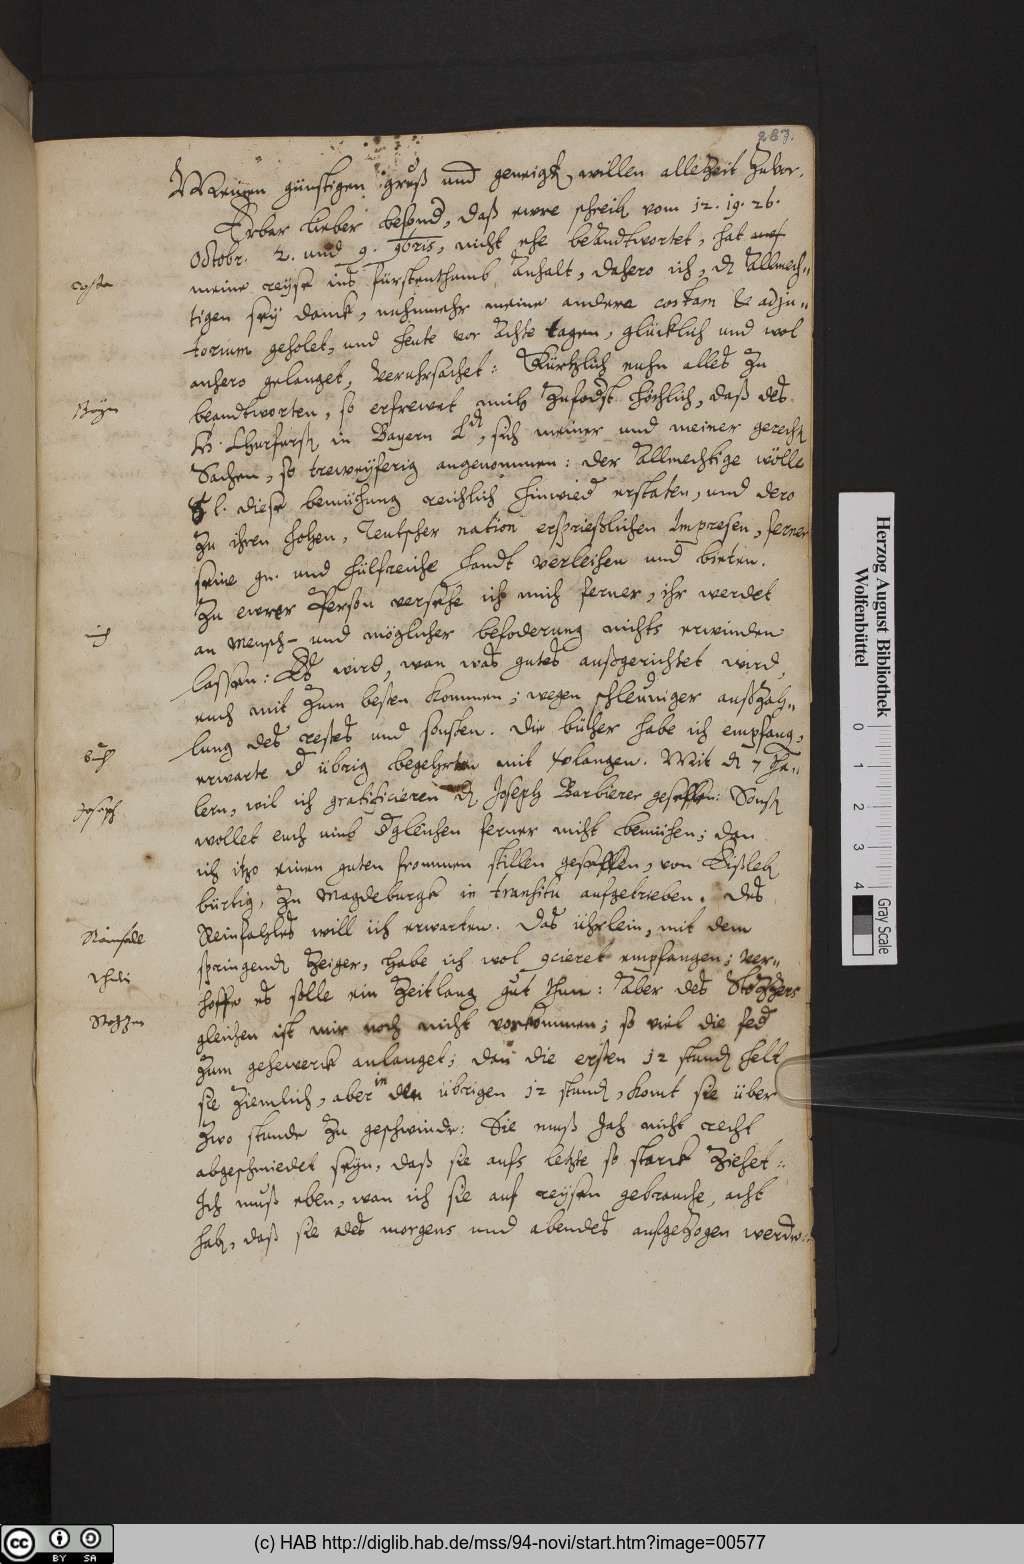 287.
Meinen günstigen gruß und geneigtẽ willen allezeit zuvor.
Erbar lieber besondr, daß ewre schreibẽ vom 12. 19. 26.
Octobr. 2. und 9. 9bris, nicht ehe beandtwortet, hat
costa
meine reyse ins fürstenthumb Anhalt, dahero ich, dẽ Allmech-
tigen sey danck, nuhnmehr meine andere costam & adju-
torium geholet, und heute vor Achte tagen, glücklich und wol
anhero gelanget, veruhrsachet: Kürtzlich nuhn alles zu
Bayrn
beandtworten, so erfrewet mich zufodrst höchlich, daß des
H. Churfürstẽ in Bayern Ld, sich meiner und meiner gerechtẽ
Sachen, so treweyferig angenommen: der Allmechtige wölle
S. L. diese bemühung reichlich hinwiedr erstaten, und dero
zu ihren hohen, Teutscher nation ersprießlichen Impresen, ferner
seine gn. und hülfreiche handt verleihen und bieten.
Zu ewrer Person versehe ich mich ferner, ihr werdet
ich
an mensch- und möglicher befoderung nichts erwinden
lassen: Es wird, wan was gutes außgerichtet wird,
euch mit zum besten kommen; wegen schleuniger außzah-
lung des restes und sonsten. Die bücher habe ich empfang,
büch
erwarte dr übrig begehrten mit verlangen. Mit dẽ 7 tha-
Joseph
lern, wil ich gratificieren dẽ Joseph Barbierer gesellen: Sonstẽ
wollet euch umb drgleichen ferner nicht bemühen; dan
ich itzo einen guten frommen stillen gesellen, von Eißlebẽ
bürtig, zu Magdeburgk in transitu aufgetrieben. Des
Reinfall
Reinfalles will ich erwarten. Das ührlein, mit dem
springendẽ Zeiger, habe ich wol empfangen; ver-
hoffe es solle ein zeitlang gut thun: Aber des
gleichen ist mir noch nicht vorkommen; so viel die fedr
zum gehewerck anlanget; dan die ersten 12 stundẽ helt
sie ziemlich, aber in den übrigen 12 stundẽ, komt sie über
zwo stunde zu geschwinde: Sie muß Jah nicht recht
abgeschmiedet seyn, daß sie aufs letzte so starck ziehet:
Ich muß eben, wan ich sie auf reysen gebrauche, acht
habẽ, daß sie des morgens und abendes aufgezogen werde:
Herzog August Bibliothek
Wolfenbüttel
0 1 2 3 4
Gray Scale
CC BY SA
(c) HAB http://diglib.hab.de/mss/94-novi/start.htm?image=00577